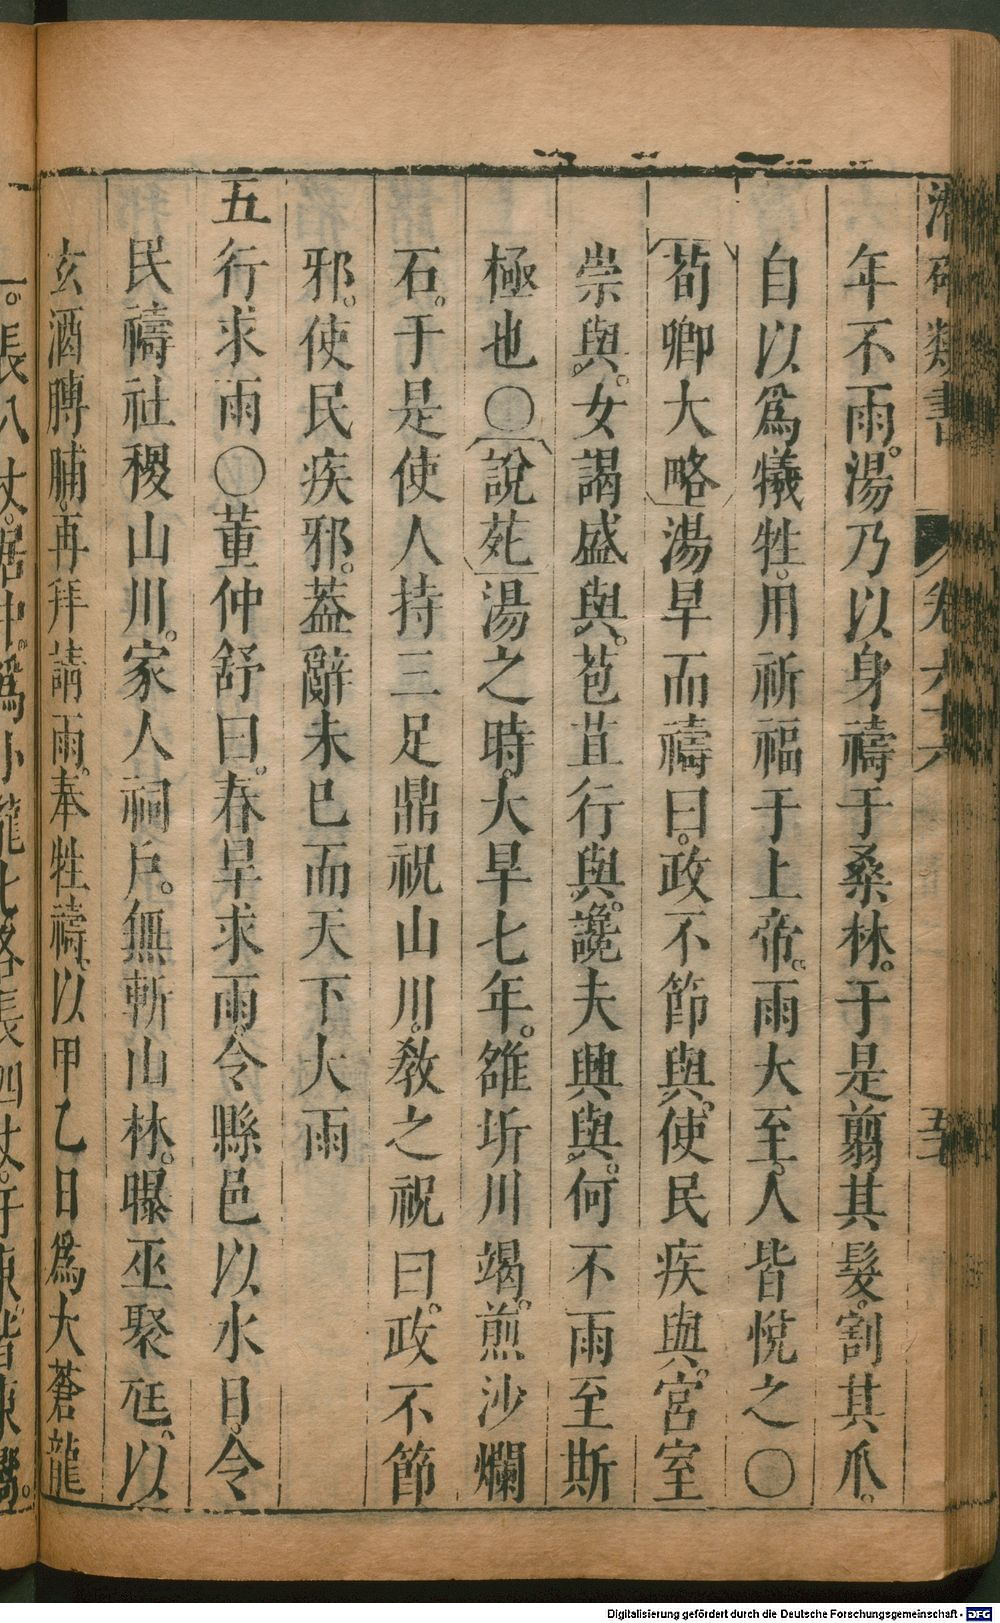 潛確類書 卷六十六
年不雨。湯乃以身禱于桑林。于是翦其髮。割其爪。
自以爲犧牲。用祈福于上帝。雨大至。人皆悅之〇
荀卿大略湯旱而禱曰。政不節與。使民疾與。宮室
崇與。女謁盛與。苞苴行與。讒夫興與。何不雨至斯
極也〇說苑湯之時。大旱七年。雒圻川竭。煎沙爛
石。于是使人持三足鼎祝山川。教之祝曰。政不節
邪。使民疾邪。蓋辭未已而天下大雨
五行求雨〇董仲舒曰。春旱求雨。令縣邑以水日。令
民禱社稷山川。家人祠戶。無斬山林。曝巫聚尪。以
玄酒膊脯。再拜請雨。奉牲禱。以甲乙日爲大蒼龍
一。長八丈。居中。爲小龍七。各長四丈。于東。皆東嚮。
Digitalisierung gefördert durch die Deutsche Forschungsgemeinschaft - DFG